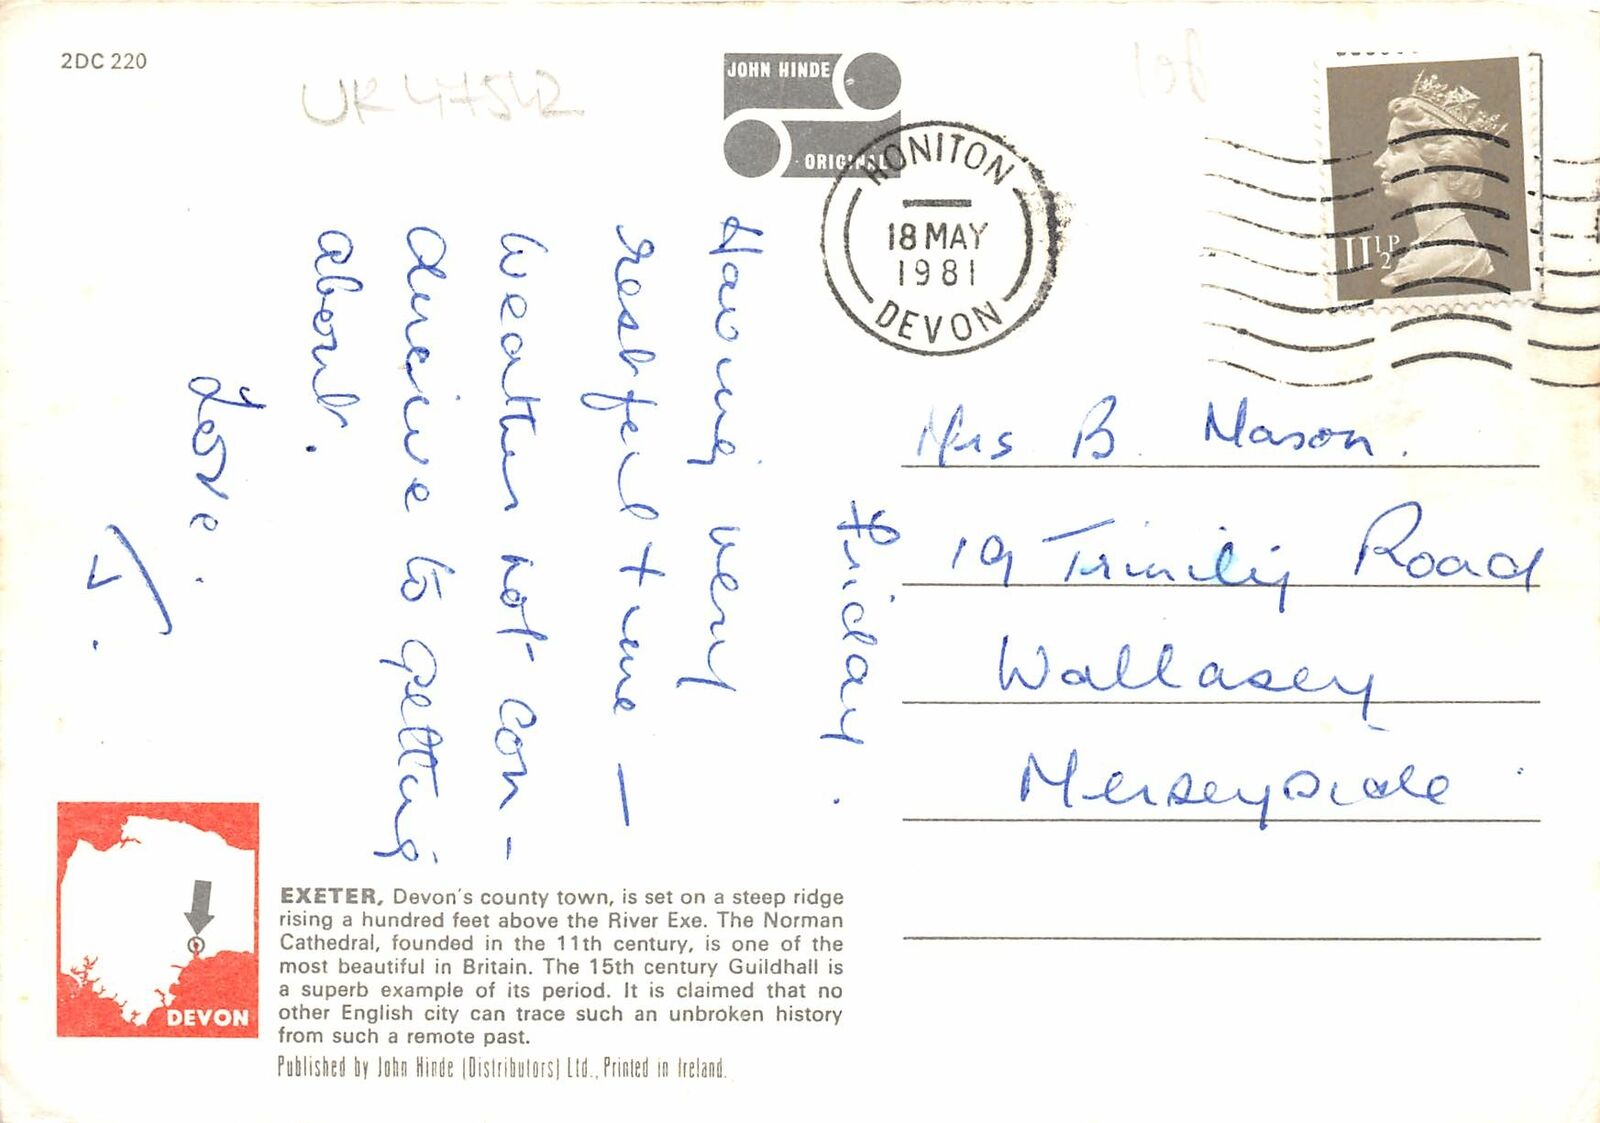 2DC 220
UK47542
JOHN HINDE
ORIGINAL
108
HONITON
18 MAY
1981
DEVON
11½P
Friday.
Having very
restful time —
Weather not con-
ducive to getting
about.
Love.
J.
Mrs B. Mason.
19 Trinity Road
Wallasey
Merseyside
DEVON
EXETER, Devon's county town, is set on a steep ridge
rising a hundred feet above the River Exe. The Norman
Cathedral, founded in the 11th century, is one of the
most beautiful in Britain. The 15th century Guildhall is
a superb example of its period. It is claimed that no
other English city can trace such an unbroken history
from such a remote past.
Published by John Hinde (Distributors) Ltd., Printed in Ireland.